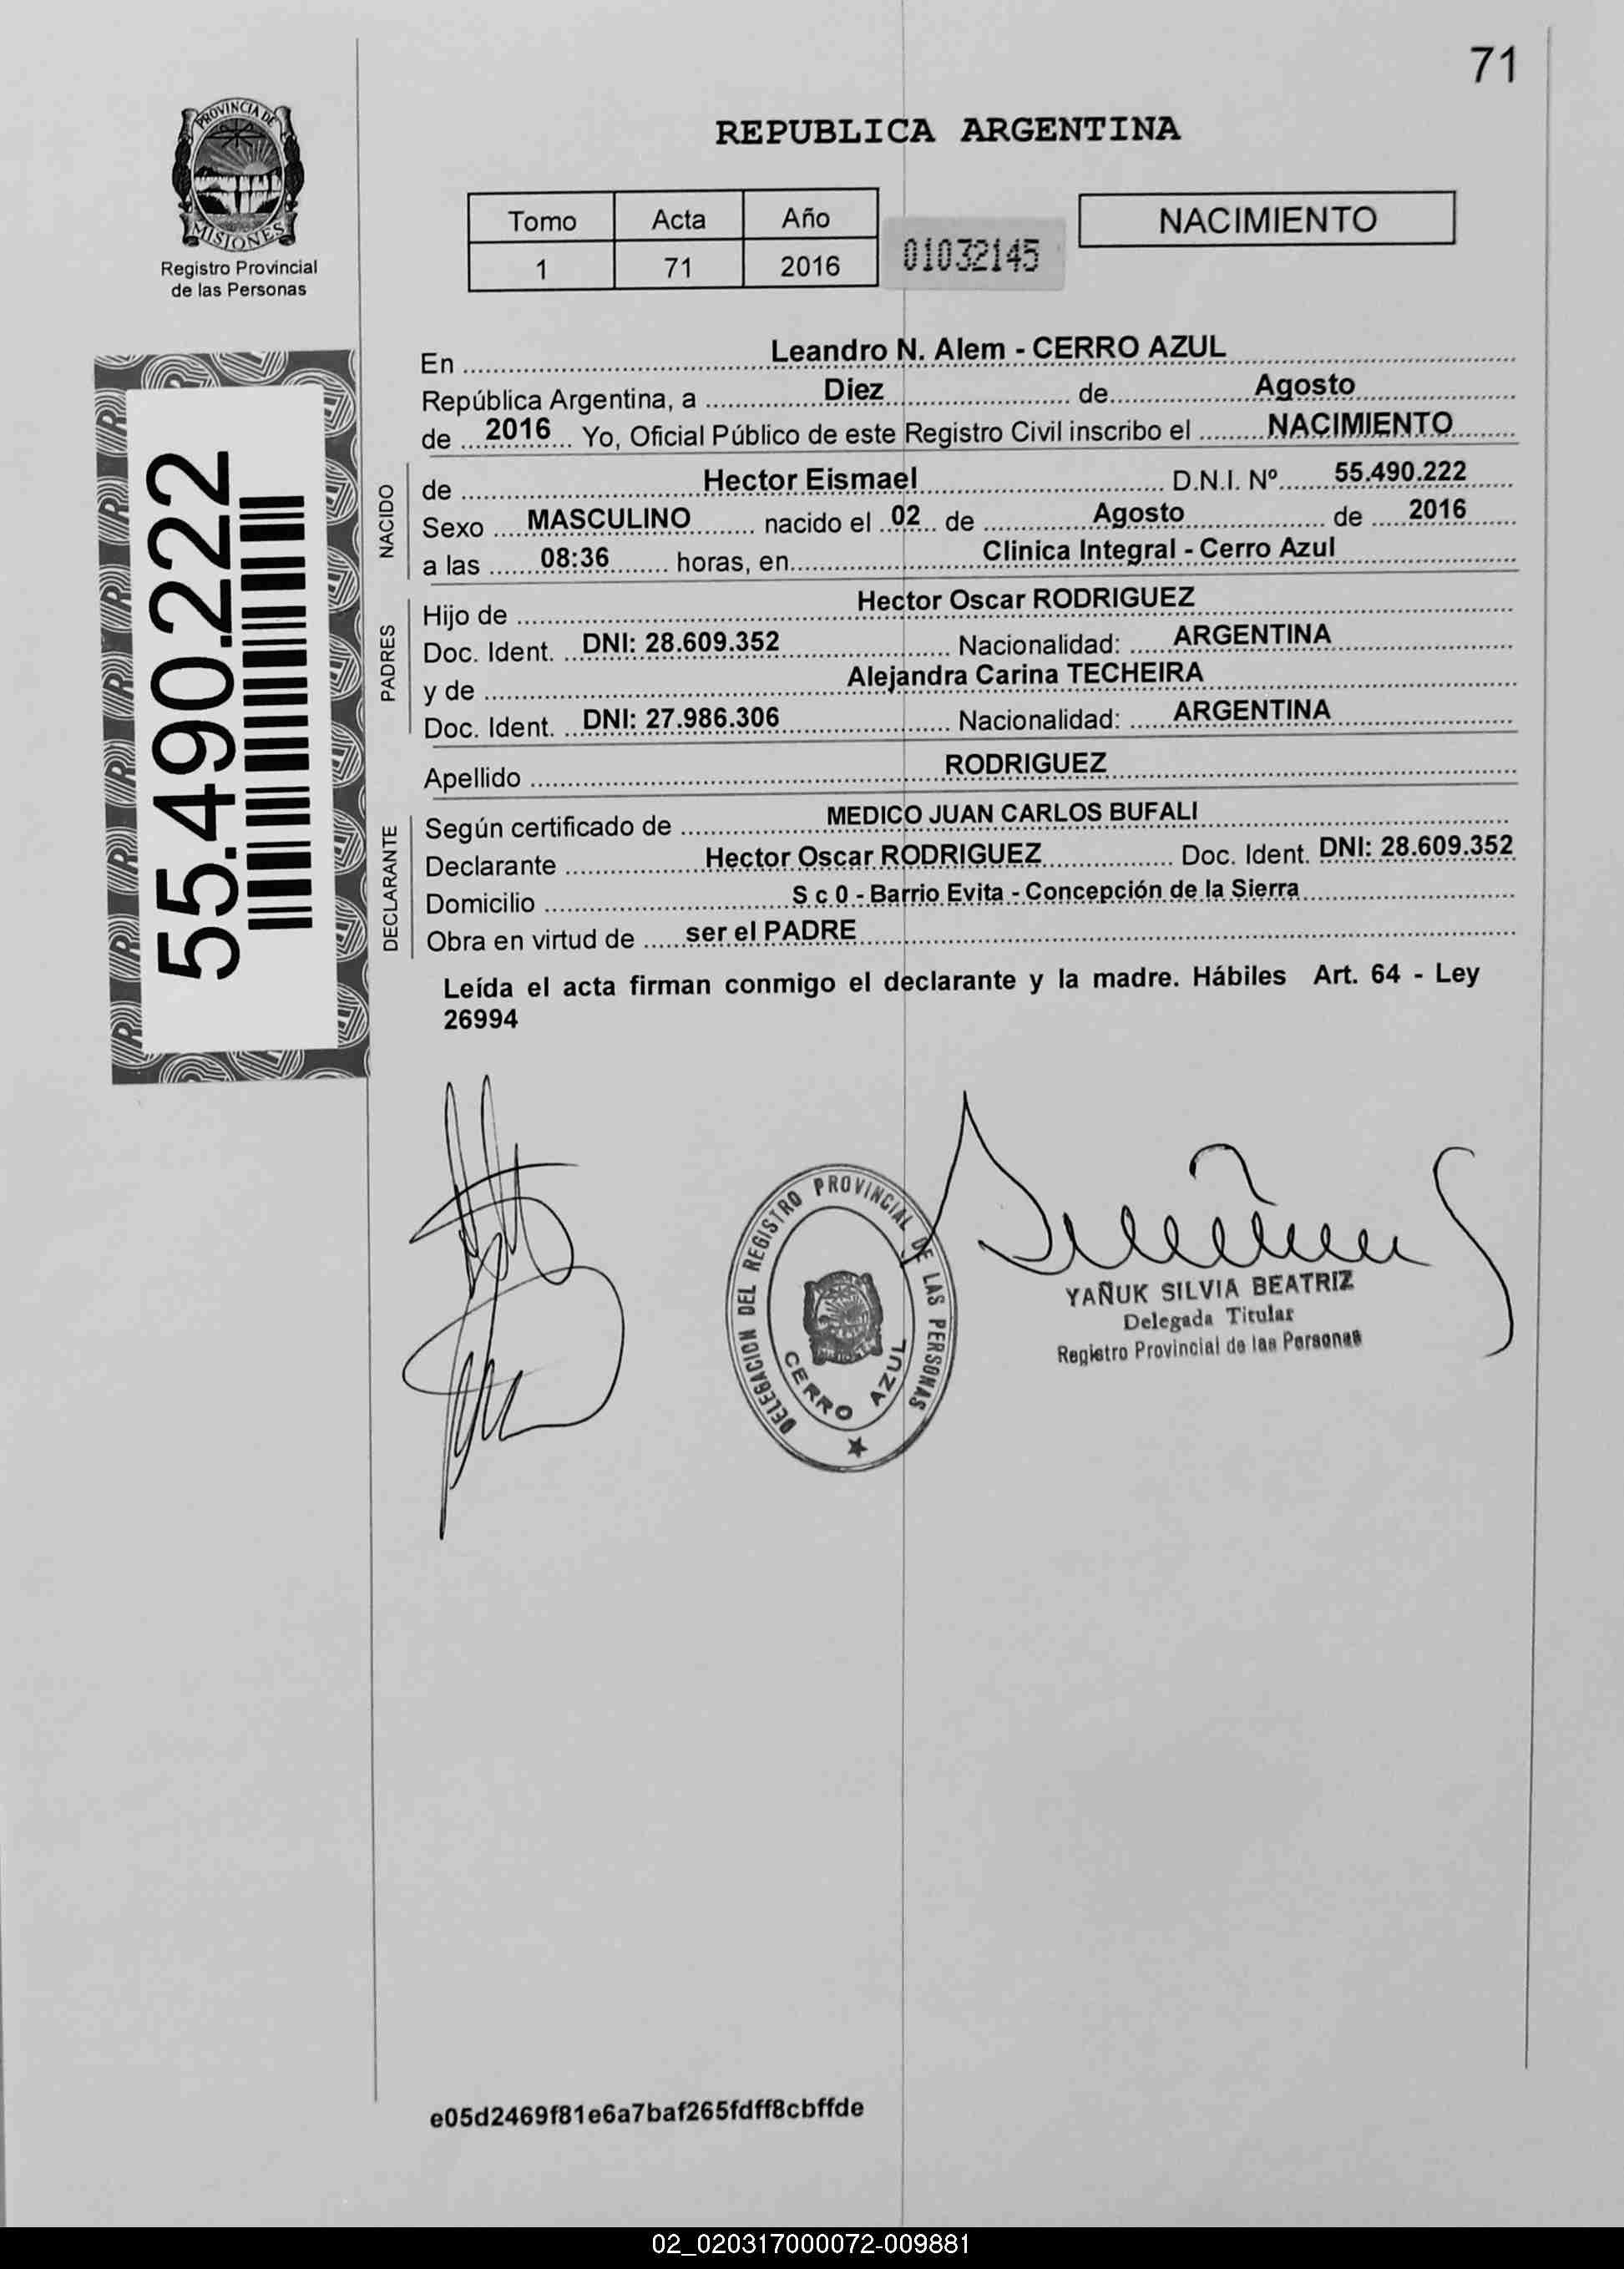 71
PROVINCIA DE
MISIONES
Registro Provincial
de las Personas
REPUBLICA ARGENTINA
Tomo Acta Año
1 71 2016
01032145
NACIMIENTO
55.490.222
En Leandro N. Alem - CERRO AZUL
República Argentina, a Diez de Agosto
de 2016 Yo, Oficial Público de este Registro Civil inscribo el NACIMIENTO
NACIDO
de Hector Eismael D.N.I. Nº 55.490.222
Sexo MASCULINO nacido el 02 de Agosto de 2016
a las 08:36 horas, en Clinica Integral - Cerro Azul
PADRES
Hijo de Hector Oscar RODRIGUEZ
Doc. Ident. DNI: 28.609.352 Nacionalidad: ARGENTINA
y de Alejandra Carina TECHEIRA
Doc. Ident. DNI: 27.986.306 Nacionalidad: ARGENTINA
Apellido RODRIGUEZ
DECLARANTE
Según certificado de MEDICO JUAN CARLOS BUFALI
Declarante Hector Oscar RODRIGUEZ Doc. Ident. DNI: 28.609.352
Domicilio S c 0 - Barrio Evita - Concepción de la Sierra
Obra en virtud de ser el PADRE
Leída el acta firman conmigo el declarante y la madre. Hábiles Art. 64 - Ley
26994
DELEGACION DEL REGISTRO PROVINCIAL DE LAS PERSONAS
CERRO AZUL
YAÑUK SILVIA BEATRIZ
Delegada Titular
Registro Provincial de las Personas
e05d2469f81e6a7baf265fdff8cbffde
02_020317000072-009881